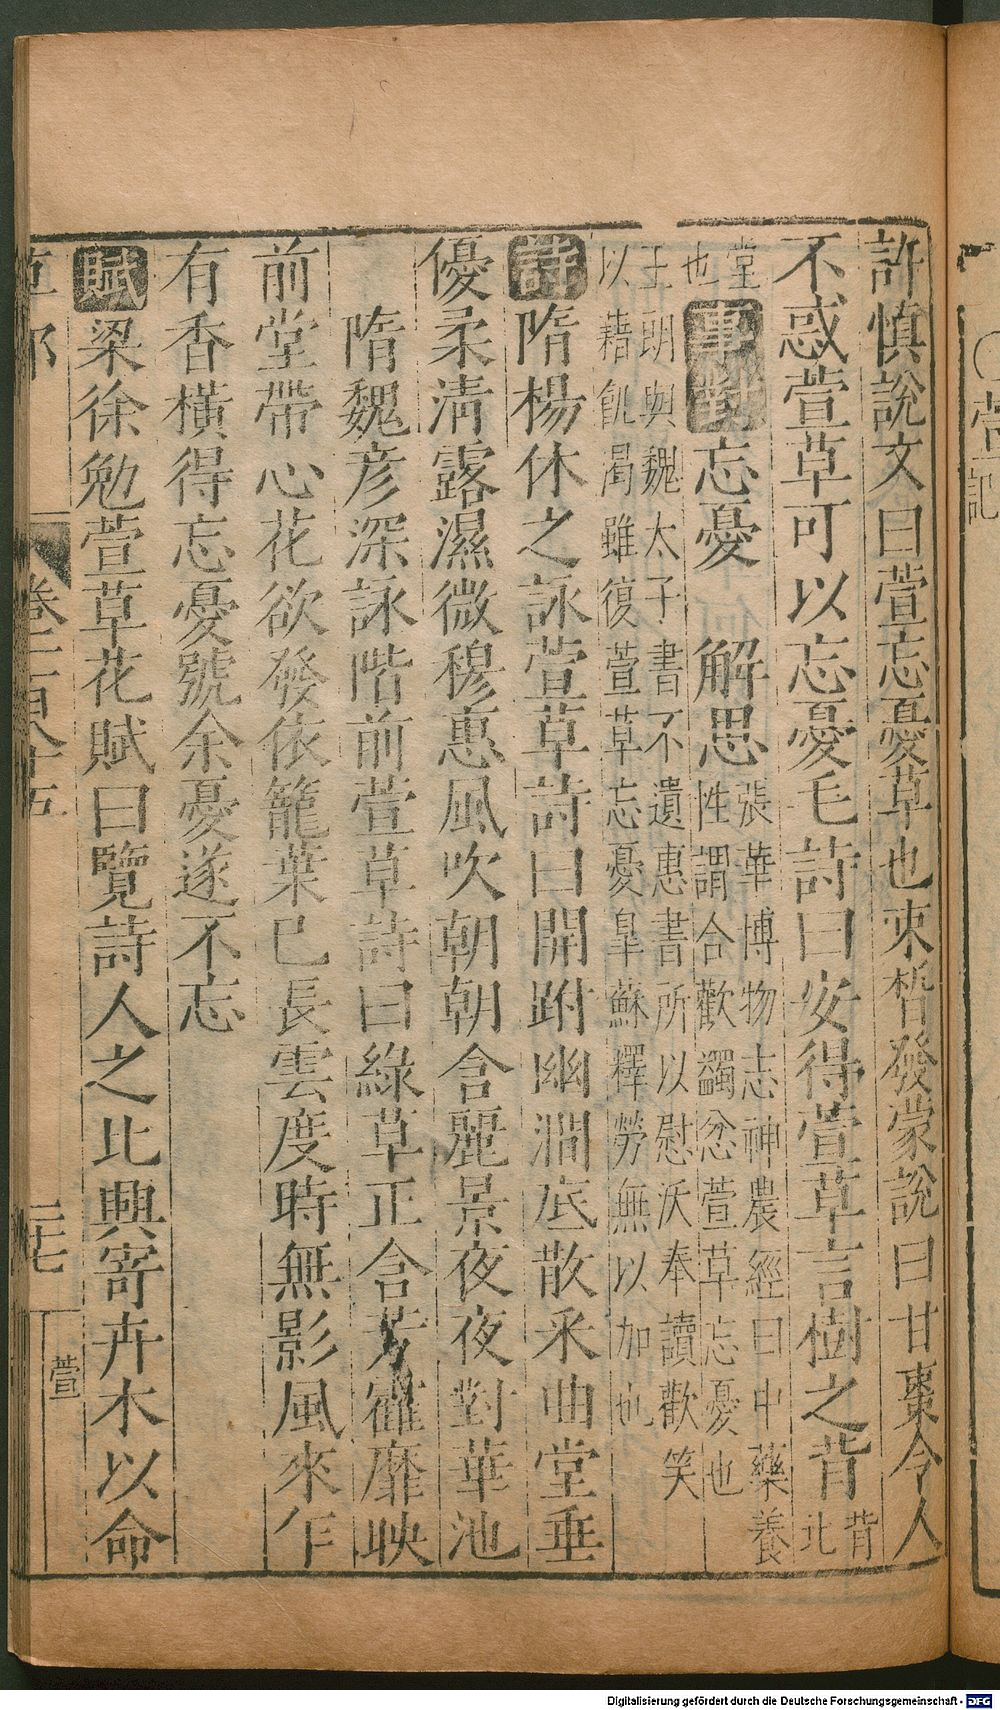 許慎說文曰萱忘憂草也束晳發蒙說曰甘棗令人
不惑萱草可以忘憂毛詩曰安得萱草言樹之背背北
堂也事對忘憂　解思張華博物志神農經曰中藥養性謂合歡蠲忿萱草忘憂也
王朗與魏太子書不遺惠書所以慰沃奉讀歡笑以藉飢渴雖復萱草忘憂皐蘇釋勞無以加也
詩隋楊休之詠萱草詩曰開跗幽澗底散采曲堂垂
優柔清露濕微穆惠風吹朝朝含麗景夜夜對華池
隋魏彦深詠階前萱草詩曰綠草正含芳靡映
前堂帶心花欲發依籠葉已長雲度時無影風來乍
有香橫得忘憂號余憂遂不忘
賦梁徐勉萱草花賦曰覽詩人之比興寄卉木以命
草部　卷三百八十五　三十七　萱
萱記
Digitalisierung gefördert durch die Deutsche Forschungsgemeinschaft - DFG